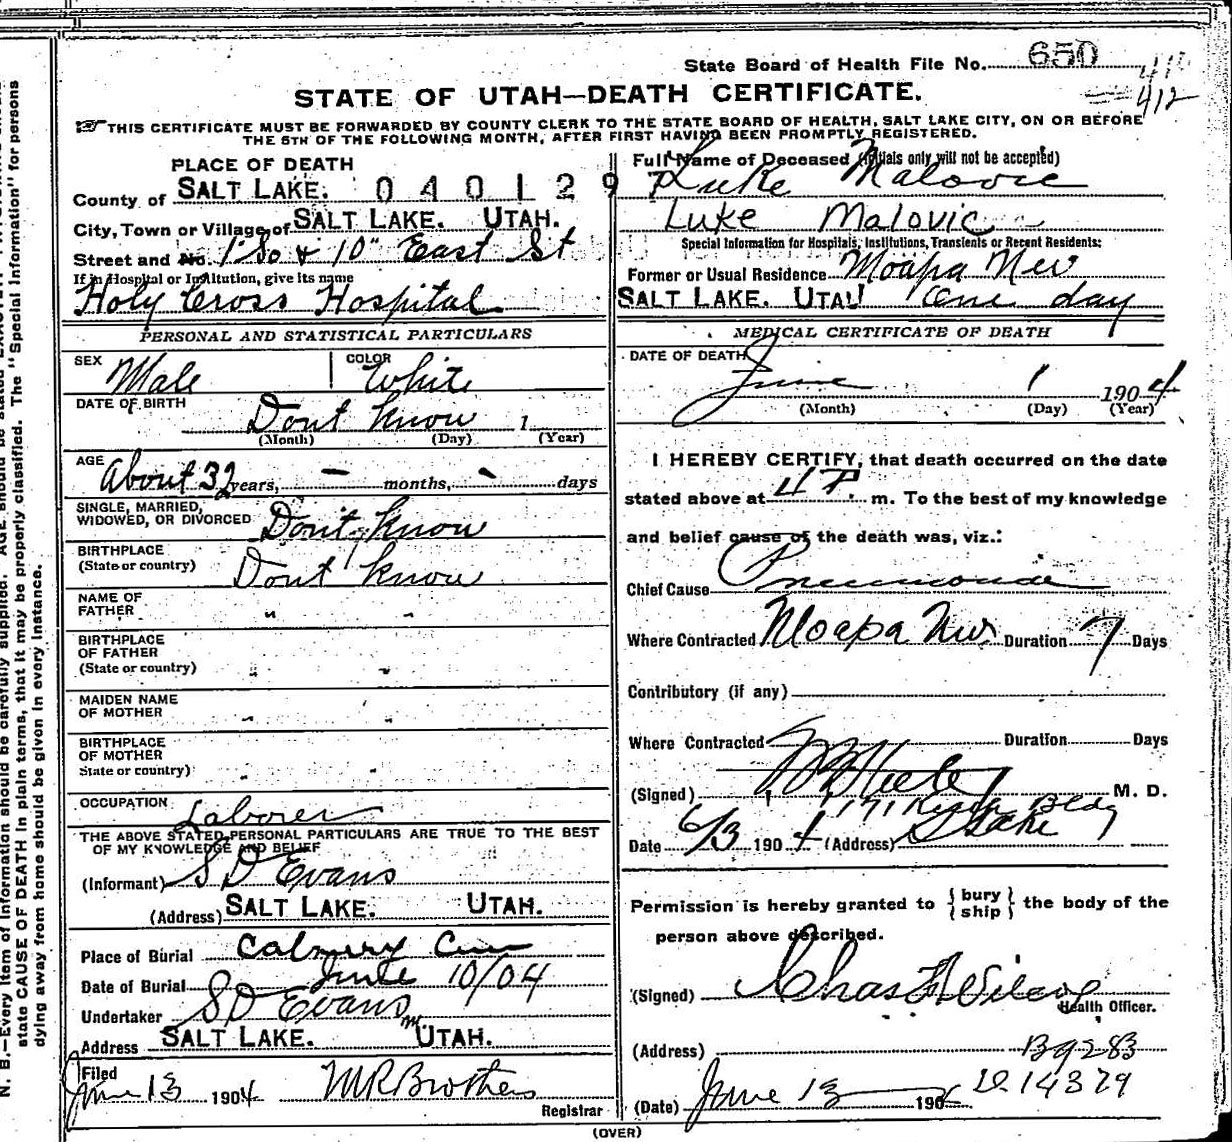 State Board of Health File No. 650
412
STATE OF UTAH—DEATH CERTIFICATE.
THIS CERTIFICATE MUST BE FORWARDED BY COUNTY CLERK TO THE STATE BOARD OF HEALTH, SALT LAKE CITY, ON OR BEFORE
THE 5TH OF THE FOLLOWING MONTH, AFTER FIRST HAVING BEEN PROMPTLY REGISTERED.
PLACE OF DEATH
County of SALT LAKE. 0401297
City, Town or Village of SALT LAKE. UTAH.
Street and No. 1 So & 10" East St
If in Hospital or Institution, give its name
Holy Cross Hospital
Full Name of Deceased (Initials only will not be accepted)
Luke Malovic
Luke Malovic
Special Information for Hospitals, Institutions, Transients or Recent Residents:
Former or Usual Residence Moapa Nev
SALT LAKE. UTAH One day
PERSONAL AND STATISTICAL PARTICULARS
SEX Male COLOR White
DATE OF BIRTH Dont Know 1
(Month) (Day) (Year)
AGE About 32 years, - months, - days
SINGLE, MARRIED,
WIDOWED, OR DIVORCED Don't Know
BIRTHPLACE
(State or country) Dont Know
NAME OF
FATHER " "
BIRTHPLACE
OF FATHER
(State or country) " "
MAIDEN NAME
OF MOTHER " "
BIRTHPLACE
OF MOTHER
State or country) " "
OCCUPATION Laborer
THE ABOVE STATED PERSONAL PARTICULARS ARE TRUE TO THE BEST
OF MY KNOWLEDGE AND BELIEF
(Informant) S D Evans
(Address) SALT LAKE. UTAH.
Place of Burial Calvery Cem
Date of Burial June 10/04
Undertaker S D Evans
Address SALT LAKE. UTAH.
Filed
June 13 1904 M R Brothers
Registrar
MEDICAL CERTIFICATE OF DEATH
DATE OF DEATH
June 1 1904
(Month) (Day) (Year)
I HEREBY CERTIFY, that death occurred on the date
stated above at 4 P. m. To the best of my knowledge
and belief cause of the death was, viz.:
Chief Cause Pneumonia
Where Contracted Moapa Nev Duration 7 Days
Contributory (if any)
Where Contracted Duration Days
(Signed) M. D.
171 Bldg
Date 6/3 1904 (Address) S Lake
Permission is hereby granted to {bury
ship} the body of the
person above described.
(Signed) Chas Wilcox
Health Officer.
(Address) Bg283
D 14379
(Date) June 13 190
(OVER)
N. B.—Every item of information should be carefully supplied. AGE should be stated EXACTLY.
state CAUSE OF DEATH in plain terms, that it may be properly classified. The "Special Information" for persons
dying away from home should be given in every instance.